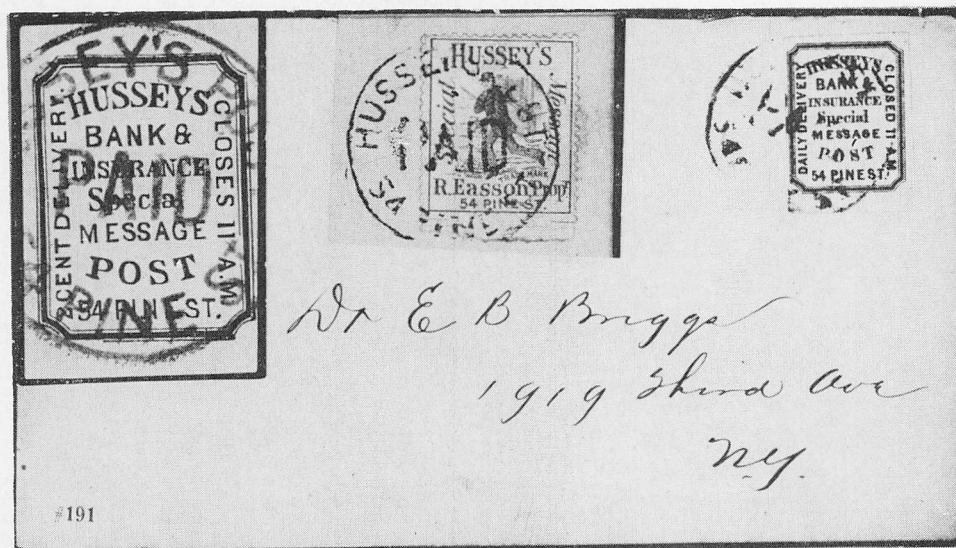 HUSSEY'S
BANK &
INSURANCE
Special
MESSAGE
POST
54 PINE ST.
CENT DELIVERY.
CLOSES 11 A.M.
PAID
PINE
HUSSEY'S
Special
Message
TRADE MARK
R. Easson Prop
54 PINE ST
HUSSEY
POST
HUSSEYS
BANK &
INSURANCE
Special
MESSAGE
POST
54 PINE ST.
DAILY DELIVERY
CLOSED 11 A.M.
Dr E B Briggs
1919 Third Ave
N.Y.
#191